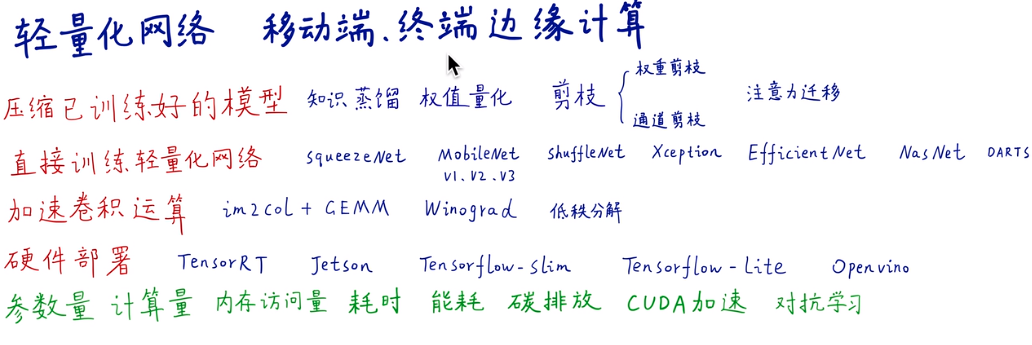 轻量化网络 移动端、终端边缘计算
压缩已训练好的模型 知识蒸馏 权值量化 剪枝 { 权重剪枝 通道剪枝 注意力迁移
直接训练轻量化网络 SqueezeNet MobileNet ShuffleNet Xception EfficientNet NasNet DARTS
V1、V2、V3
加速卷积运算 im2col + GEMM Winograd 低秩分解
硬件部署 TensorRT Jetson Tensorflow-slim Tensorflow-Lite Openvino
参数量 计算量 内存访问量 耗时 能耗 碳排放 CUDA加速 对抗学习